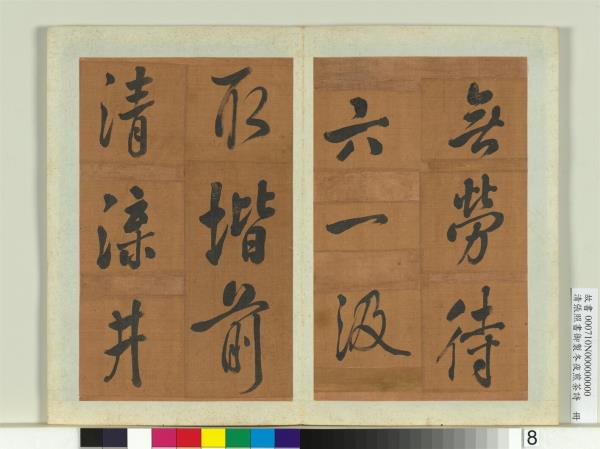 無勞待
六一汲
取堦前
清涼井
故書 000710N000000000
清張照書御製冬夜煎茶詩 冊
8